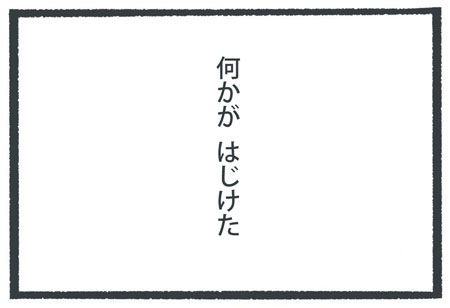 何かが はじけた